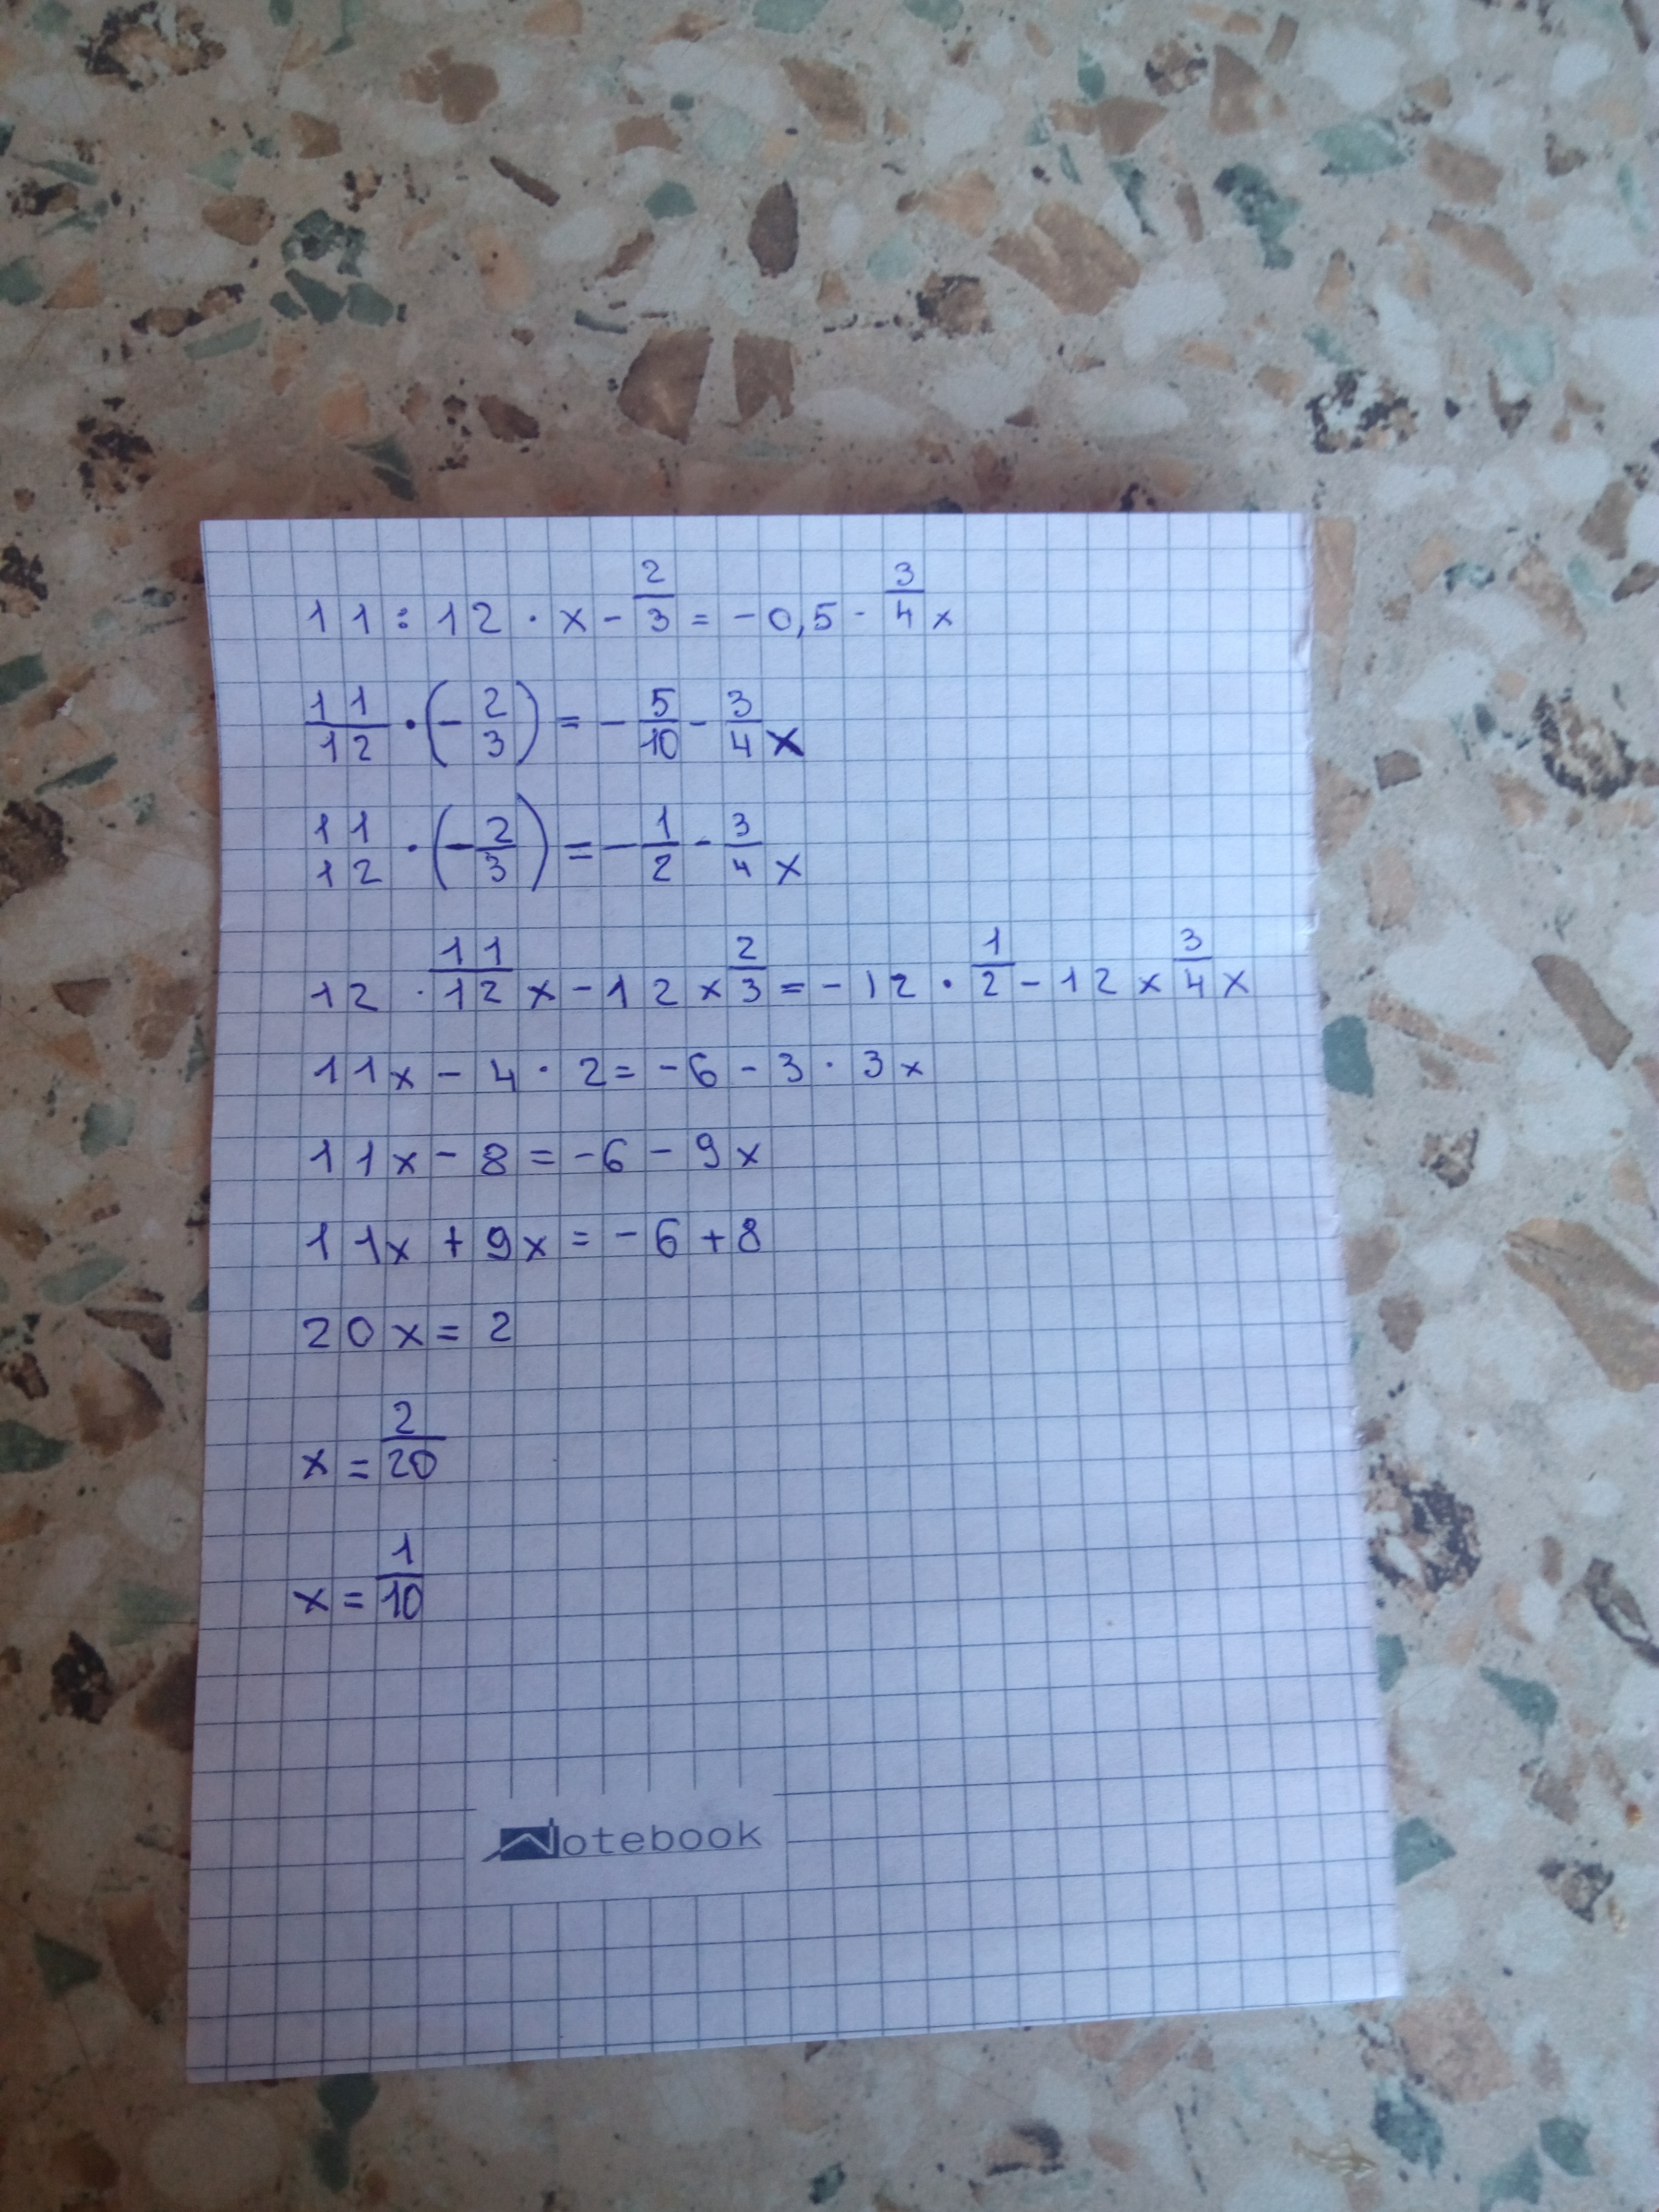 11 : 12 · x - 2/3 = -0,5 - 3/4 x
11/12 · (-2/3) = -5/10 - 3/4 x
11 12 · (-2/3) = -1/2 - 3/4 x
12 · 11/12 x - 12 x 2/3 = -12 · 1/2 - 12 x 3/4 x
11x - 4 · 2 = -6 - 3 · 3x
11x - 8 = -6 - 9x
11x + 9x = -6 + 8
20x = 2
x = 2/20
x = 1/10
Notebook